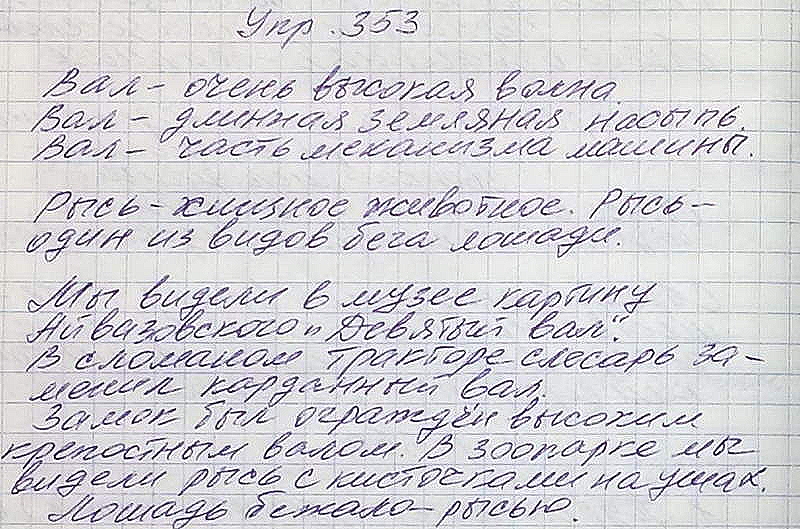 Упр. 353
Вал – очень высокая волна.
Вал – длинная земляная насыпь.
Вал – часть механизма машины.
Рысь – хищное животное. Рысь –
один из видов бега лошади.
Мы видели в музее картину
Айвазовского „Девятый вал".
В сломаном тракторе слесарь за-
менил карданный вал.
Замок был ограждён высоким
крепостным валом. В зоопарке мы
видели рысь с кисточками на ушах.
Лошадь бежала – рысью.